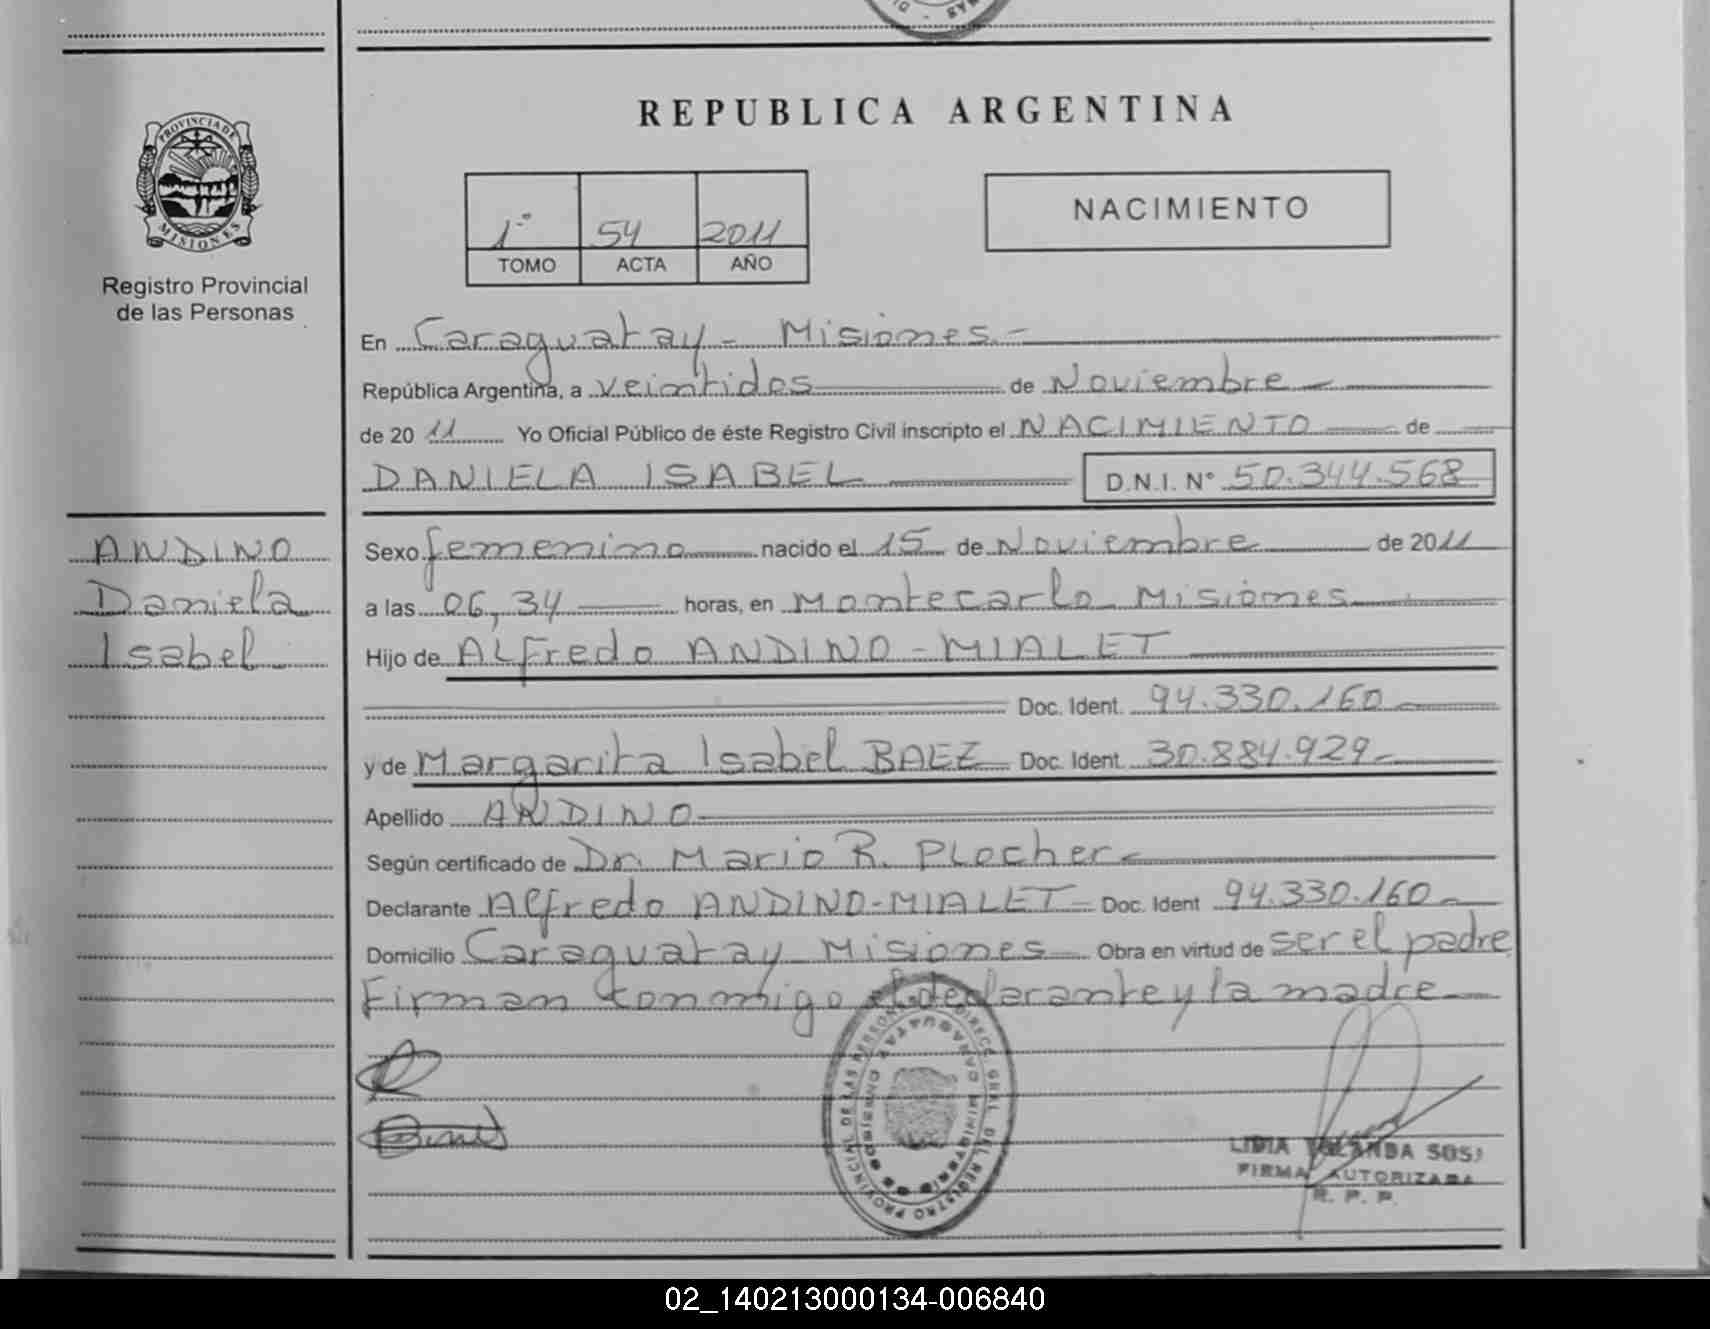 REPUBLICA ARGENTINA
PROVINCIA DE
MISIONES
Registro Provincial
de las Personas
1º 54 2011
TOMO ACTA AÑO
NACIMIENTO
En Caraguatay - Misiones.-
República Argentina, a veintidos de Noviembre
de 20 11 Yo Oficial Público de éste Registro Civil inscripto el NACIMIENTO de
DANIELA ISABEL D.N.I. Nº 50.344.568
ANDINO
Daniela
Isabel
Sexo femenino nacido el 15 de Noviembre de 2011
a las 06,34 horas, en Montecarlo Misiones
Hijo de ALfredo ANDINO-MIALET
Doc. Ident. 94.330.160
y de Margarita Isabel BAEZ Doc. Ident. 30.884.929
Apellido ANDINO
Según certificado de Dr. Mario R. PLocher
Declarante Alfredo ANDINO-MIALET Doc. Ident 94.330.160
Domicilio Caraguatay Misiones Obra en virtud de ser el padre
Firman conmigo el declarante y la madre
DIRECC. GRAL. DEL REGISTRO PROVINCIAL DE LAS PERSONAS
CARAGUATAY
LIDIA YOLANDA SOSA
FIRMA AUTORIZADA
R. P. P.
02_140213000134-006840